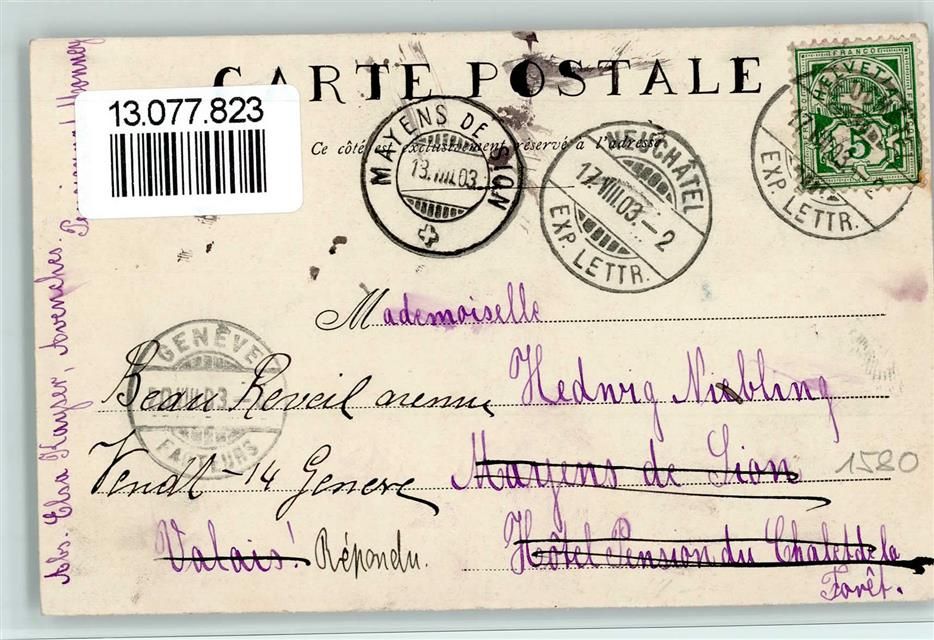 CARTE POSTALE
13.077.823
Ce côté est exclusivement réservé à l'adresse
MAYENS DE SION
13.VIII.03.
NEUCHÂTEL
17.VIII.03.–2
EXP. LETTR.
FRANCO
HELVETIA
5
17.VIII.03.–2
EXP. LETTR.
Mademoiselle
GENÈVE
VIII.03.
FACTEURS
Hedwig Niebling
Beau Reveil avenue
Mayens de Sion
Vendt-14 Geneve
1580
Hôtel Pension du Chalet de la
Forêt.
Valais! Répondu.
Abs. Elsa Kayser, Avenches.